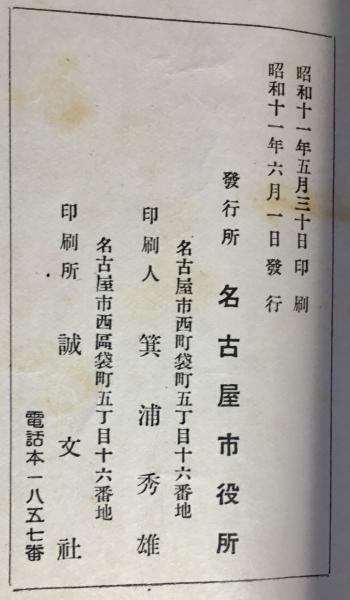 昭和十一年五月三十日印刷
昭和十一年六月一日發行
發行所 名古屋市役所
名古屋市西町袋町五丁目十六番地
印刷人 箕浦秀雄
名古屋市西區袋町五丁目十六番地
印刷所 誠文社
電話本一八五七番